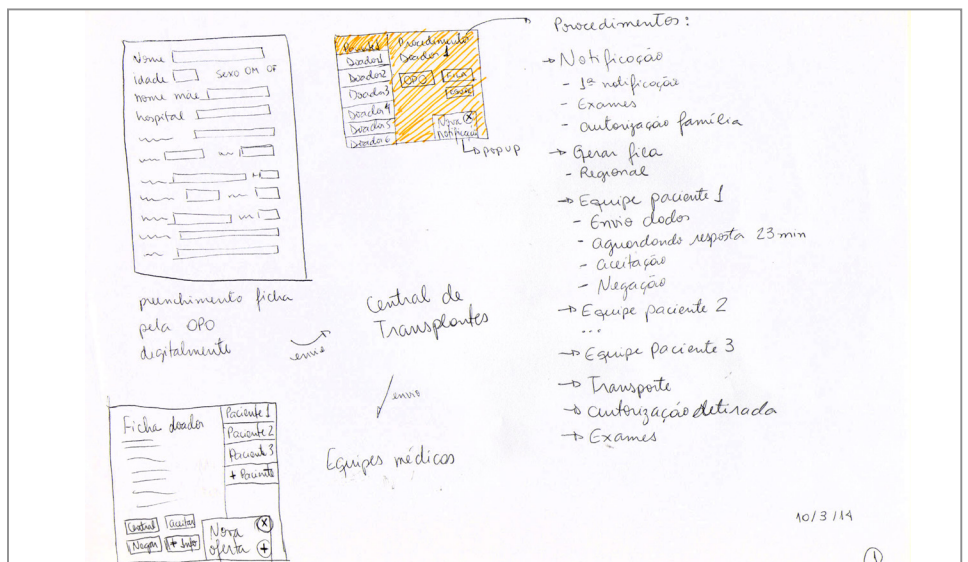 Nome
idade Sexo OM OF
nome mãe
hospital
preenchimento ficha
pela OPO
digitalmente
envio
Procedimento
Doador 1
Doador1
Doador2
Doador3
Doador4
Doador5
Doador6
OPO
FILA
Nova
notificação
X
popup
Central de
Transplantes
envio
Equipes médicas
Ficha doador
Paciente 1
Paciente 2
Paciente 3
+ Paciente
Central
aceitar
Negar
+ Info
Nova
oferta
X
+
Procedimentos:
→ Notificação
- 1ª notificação
- Exames
- autorização família
→ Gerar fila
- Regional
→ Equipe paciente 1
- Envio dados
- aguardando resposta 23 min
- aceitação
- Negação
→ Equipe paciente 2
...
→ Equipe Paciente 3
→ Transporte
→ autorização retirada
→ Exames
10/3/14
1